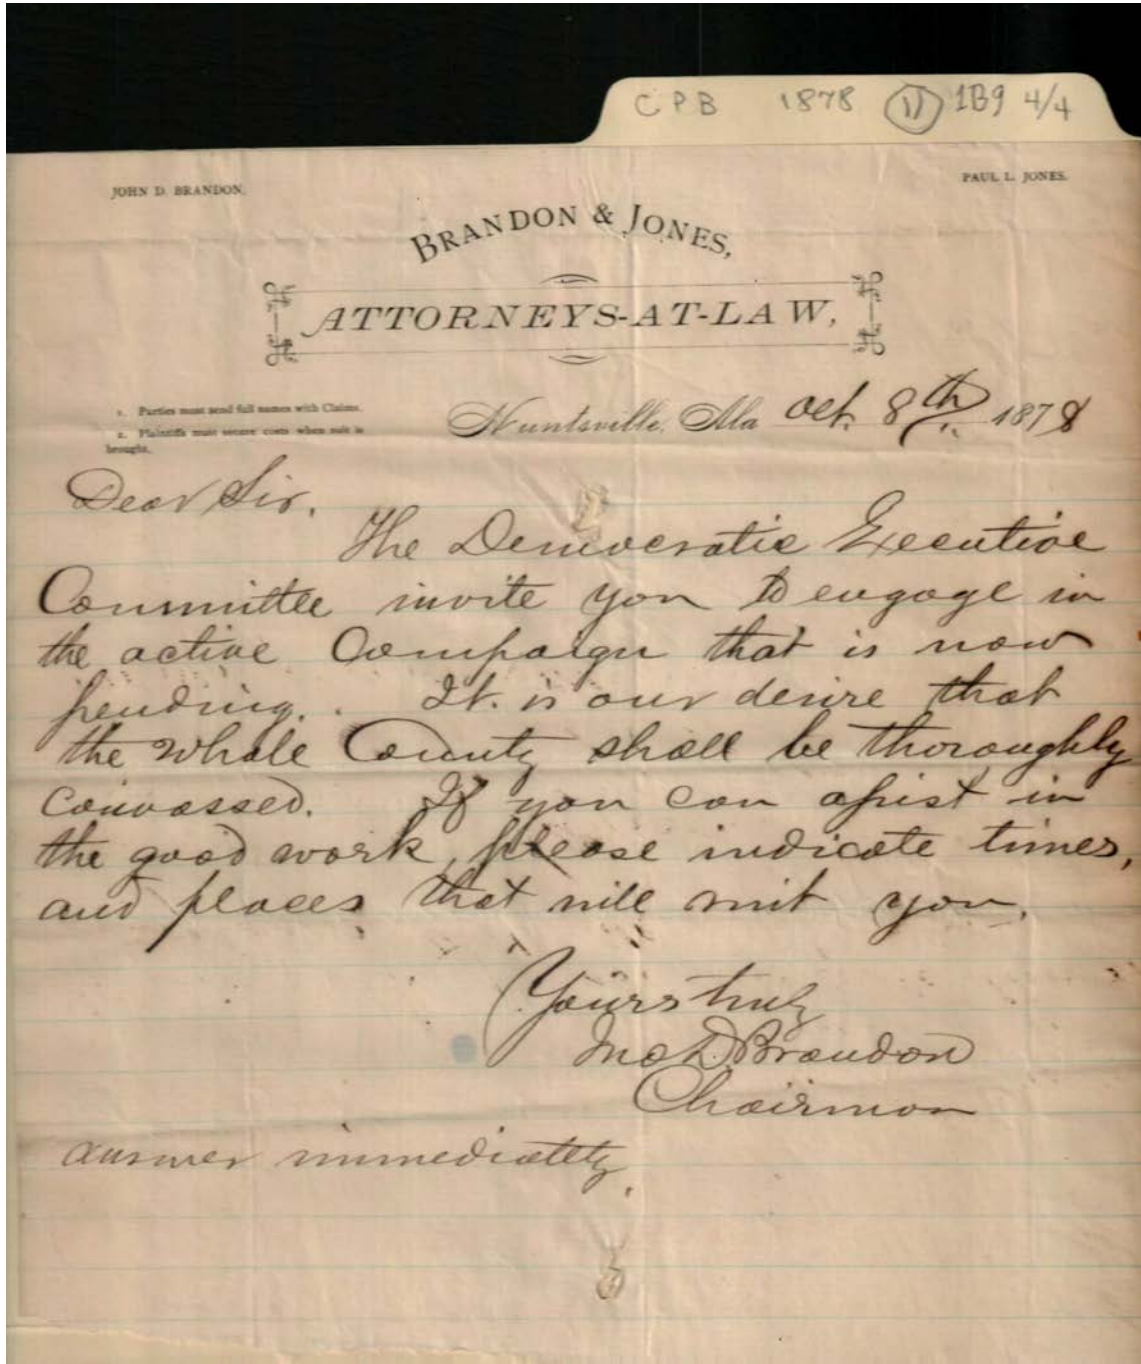 CPB 1878 (11) 1B9 4/4
JOHN D. BRANDON.
PAUL L. JONES.
BRANDON & JONES,
ATTORNEYS-AT-LAW,
1. Parties must send full names with Claims.
2. Plaintiffs must secure costs when suit is
brought.
Huntsville, Ala Oct. 8th, 1878
Dear Sir.
The Democratic Executive
Committee invite you to engage in
the active Campaign that is now
pending. It is our desire that
the whole County shall be thoroughly
canvassed. If you can assist in
the good work, please indicate times,
and places that will suit you.
Yours truly
Jno D. Brandon
Chairman
answer immediately,